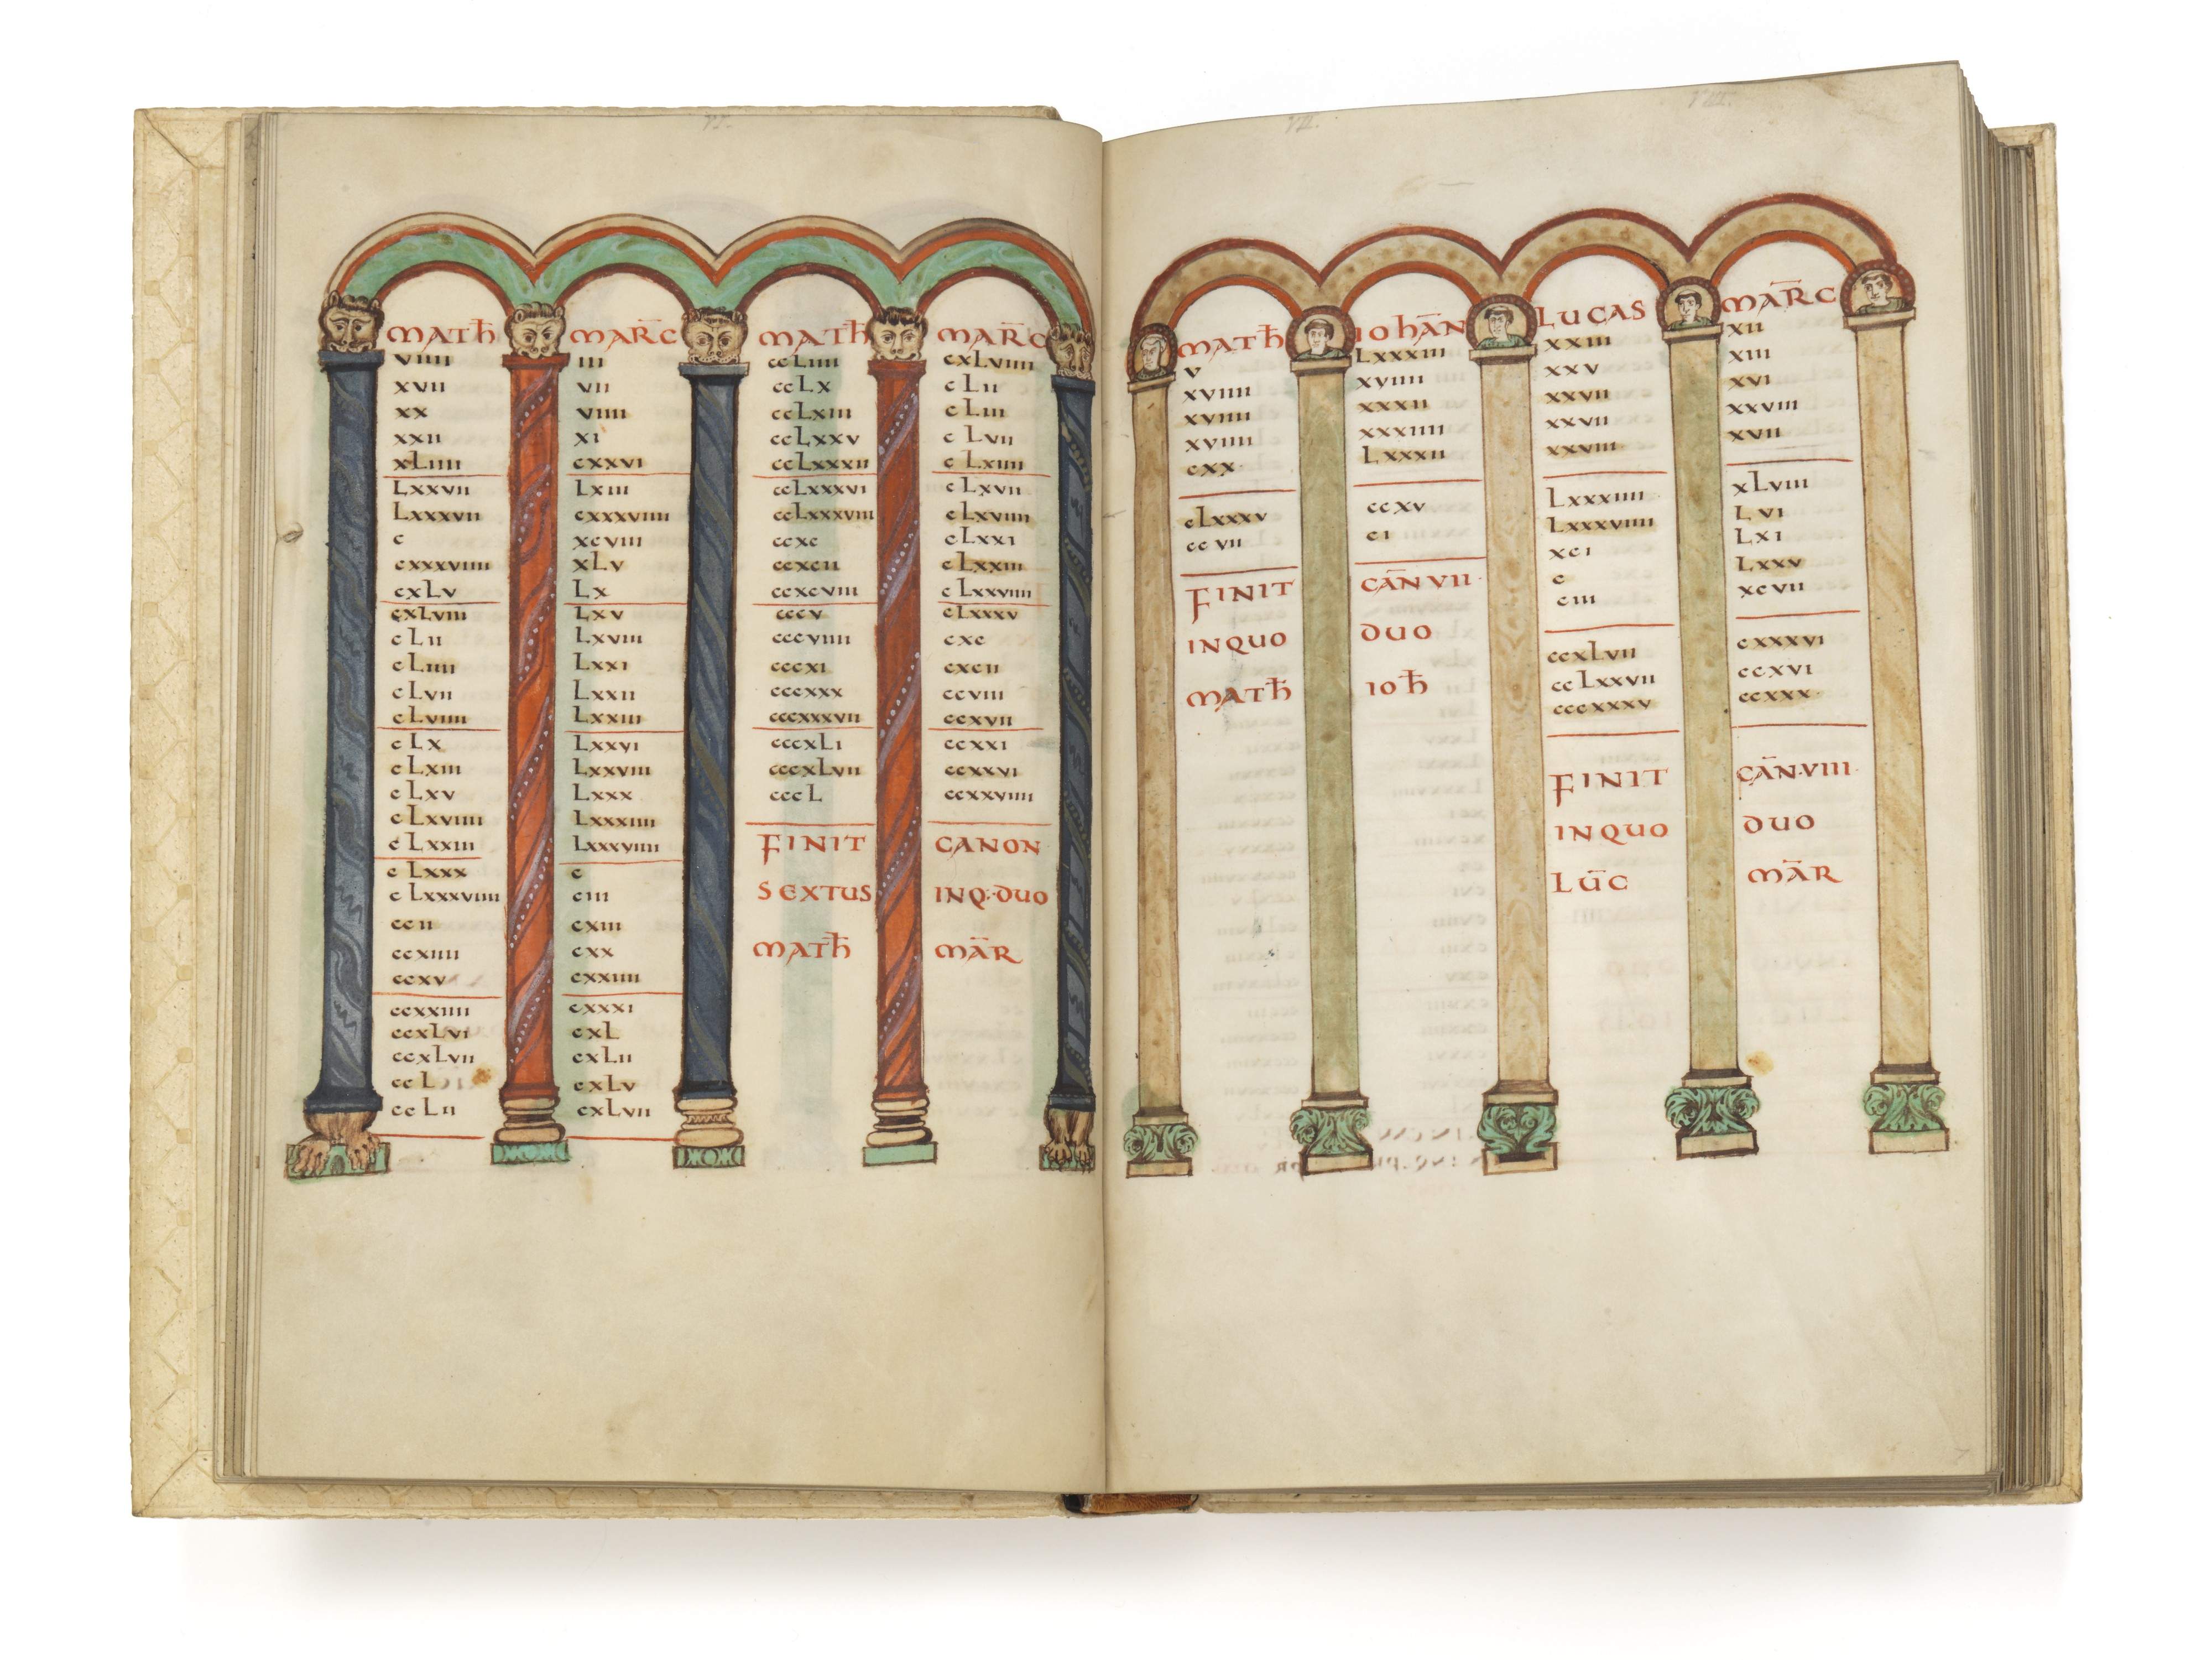 VI.
MATH̄
VIIII
XVII
XX
XXII
XLIIII
LXXVII
LXXXVII
C
CXXXVIIII
CXLV
CXLVIII
CLII
CLIIII
CLVII
CLVIIII
CLX
CLXIII
CLXV
CLXVIIII
CLXXIII
CLXXX
CLXXXVIIII
CCII
CCXIIII
CCXV
CCXXIIII
CCXLVI
CCXLVII
CCL
CCLII
MAR̄C
III
VII
VIIII
XI
CXXVI
LXIII
CXXXVIIII
XCVIII
XLV
LX
LXV
LXVIII
LXXI
LXXII
LXXIII
LXXVI
LXXVIII
LXXX
LXXXIIII
LXXXVIIII
C
CIII
CXIII
CXX
CXXIIII
CXXXI
CXL
CXLII
CXLV
CXLVII
MATH̄
CCLIIII
CCLX
CCLXIII
CCLXXV
CCLXXXII
CCLXXXVI
CCLXXXVIII
CCXC
CCXCII
CCXCVIII
CCCV
CCCVIIII
CCCXI
CCCXXX
CCCXXXVII
CCCXLI
CCCXLVII
CCCL
MAR̄C
CXLVIIII
CLII
CLIII
CLVII
CLXIIII
CLXVII
CLXVIIII
CLXXI
CLXXIII
CLXXVIIII
CLXXXV
CXC
CXCII
CCVIII
CCXVII
CCXXI
CCXXVI
CCXXVIIII
FINIT CANON
SEXTUS INQ·DUO
MATH̄ MĀR
VII.
VIII.
MATH̄
V
XVIIII
XVIIII
XVIIII
CXX
CLXXXV
CCVII
IOHĀN
LXXXIII
XVIIII
XXXII
XXXIIII
LXXXII
CCXV
CI
FINIT CĀN VII·
INQUO DUO
MATH̄ IOH̄
LUCAS
XXIII
XXV
XXVII
XXVII
XXVIII
LXXXIIII
LXXXVIIII
XCI
C
CIII
CCXLVII
CCLXXVII
CCCXXXV
MAR̄C
XII
XIII
XVI
XXVIII
XVII
XLVIII
LVI
LXI
LXXV
XCVII
CXXXVI
CCXVI
CCXXX·
FINIT CĀN·VIII·
INQUO DUO
LŪC MĀR
7